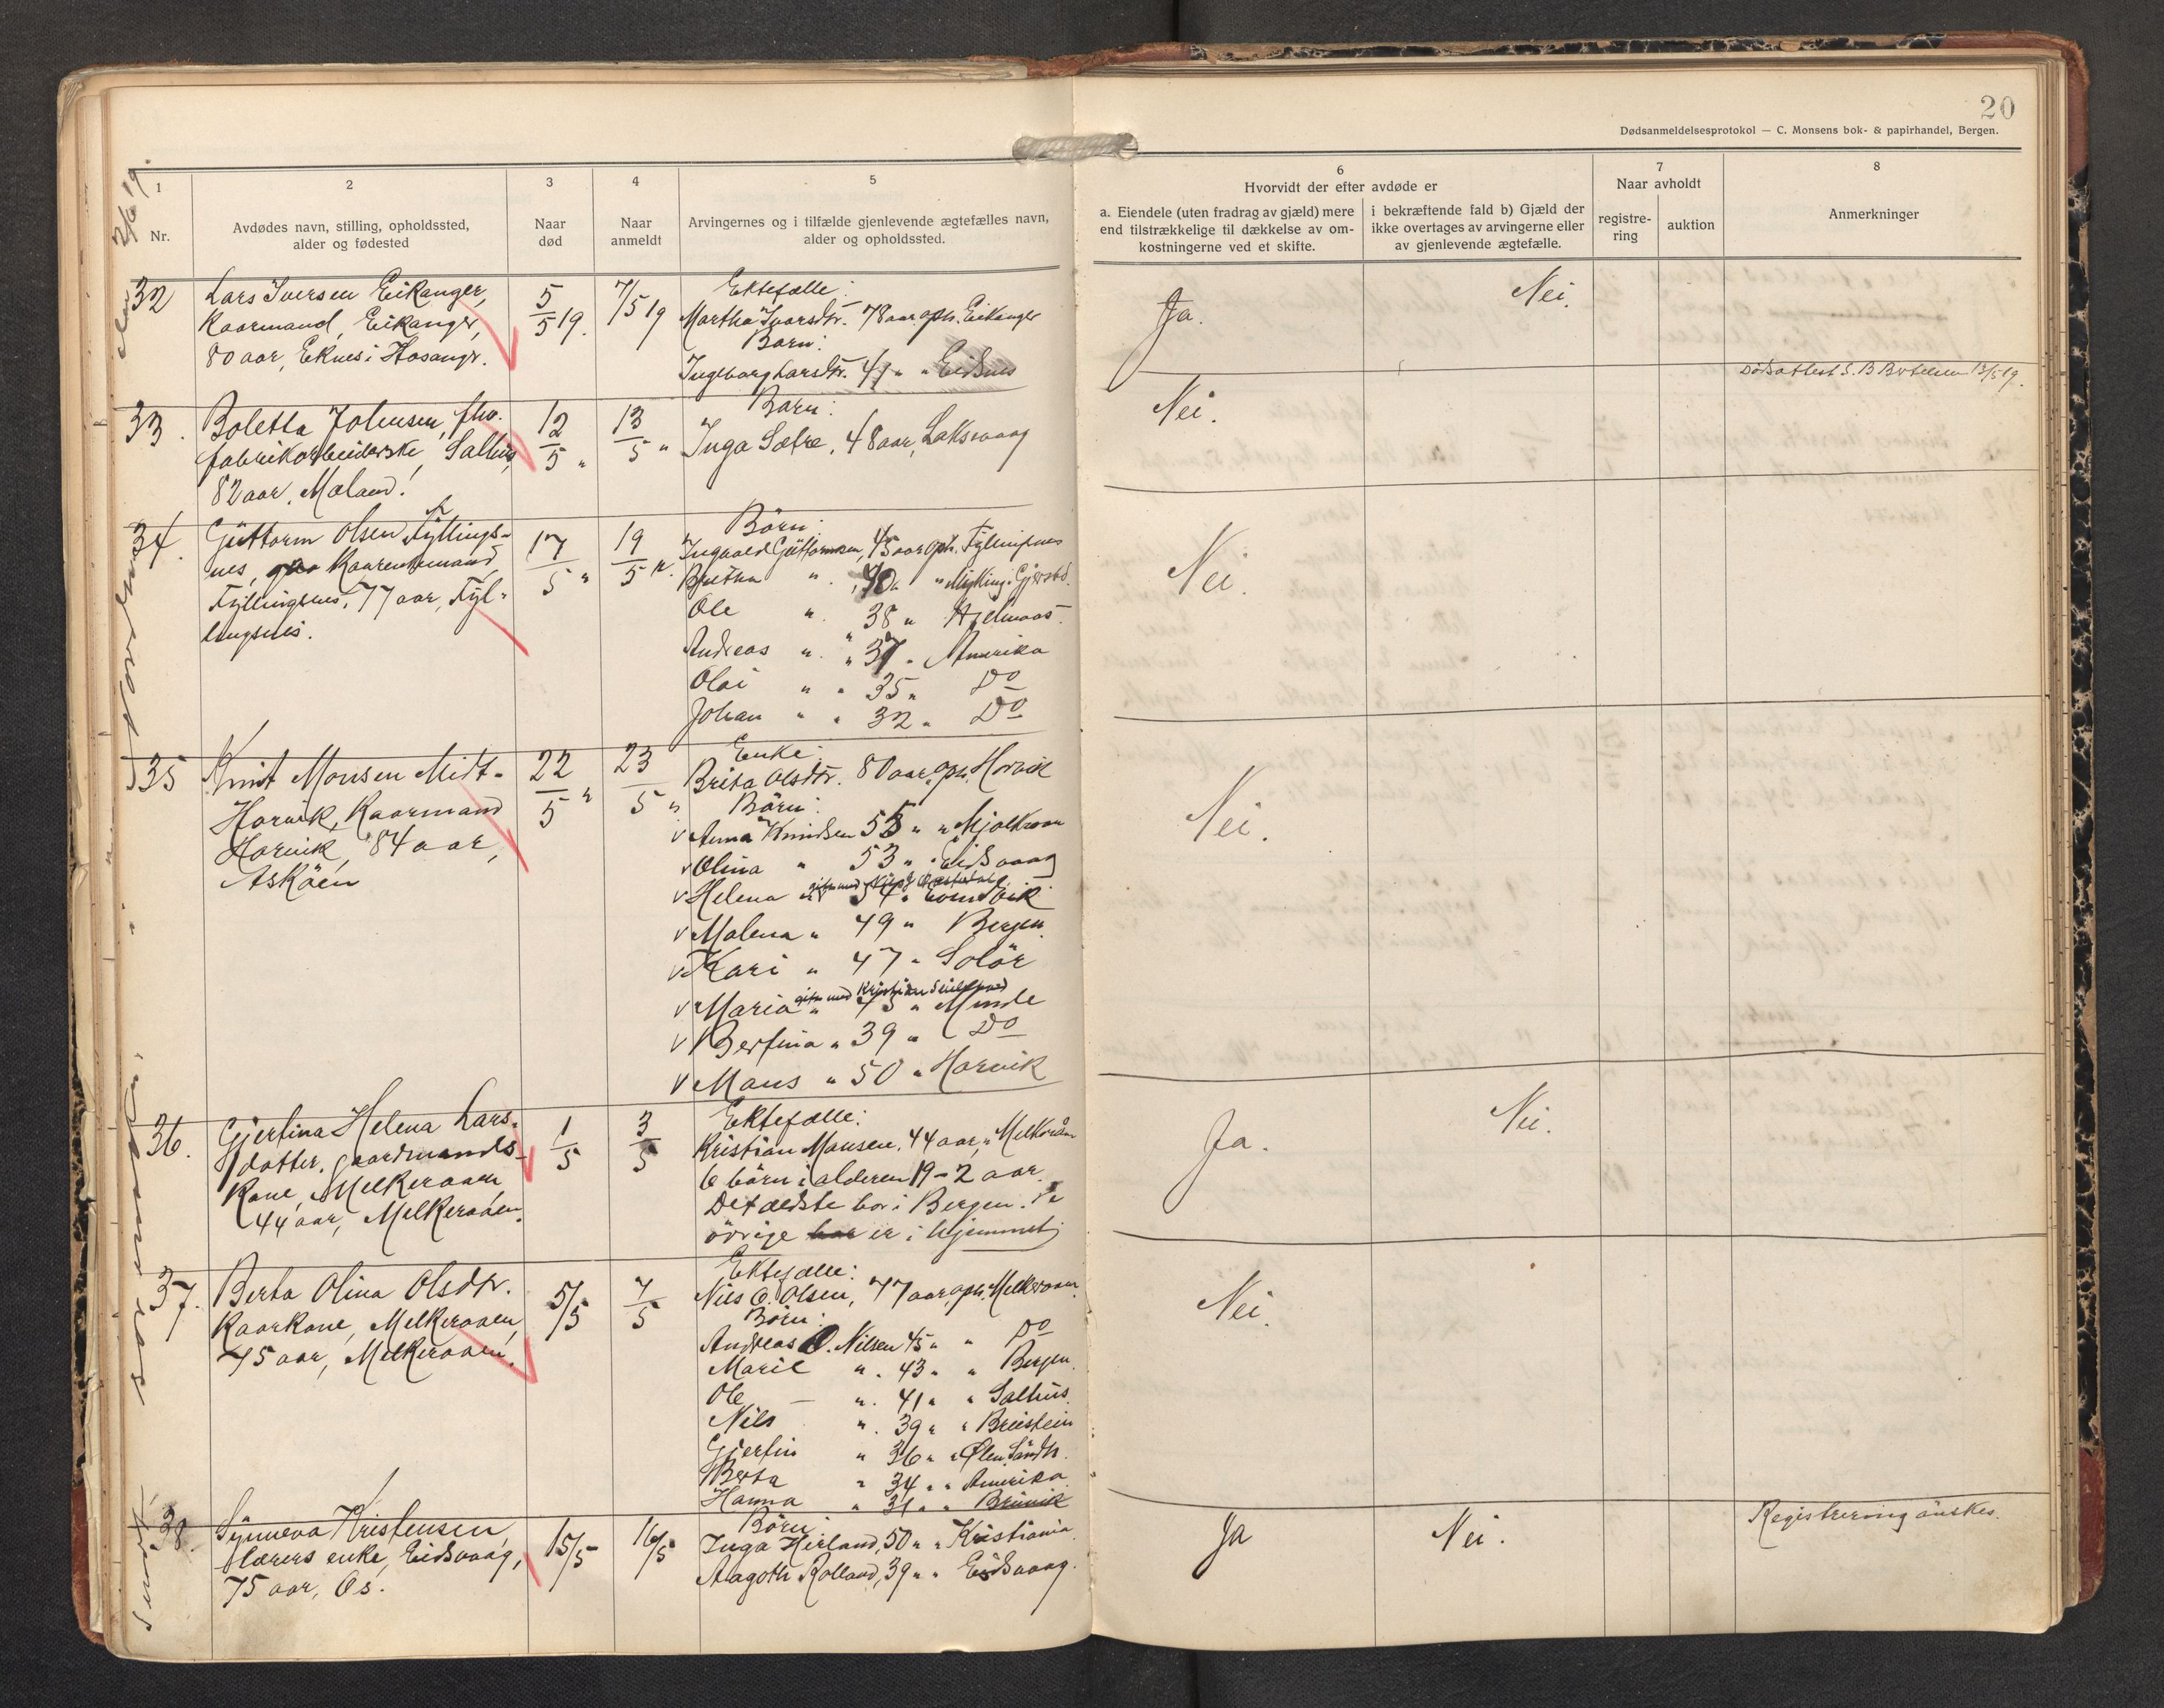 20
Dødsanmeldelsesprotokol — C. Monsens bok- & papirhandel, Bergen.
1
Nr.
2
Avdødes navn, stilling, opholdssted,
alder og fødested
3
Naar
død
4
Naar
anmeldt
5
Arvingernes og i tilfælde gjenlevende ægtefælles navn,
alder og opholdssted.
6
Hvorvidt der efter avdøde er
a. Eiendele (uten fradrag av gjæld) mere
end tilstrækkelige til dækkelse av om-
kostningerne ved et skifte.
i bekræftende fald b) Gjæld der
ikke overtages av arvingerne eller
av gjenlevende ægtefælle.
7
Naar avholdt
registre-
ring
auktion
8
Anmerkninger
32
Lars Iversen Eikanger,
Kaarmand, Eikanger,
80 aar, Eknes i Hosangr.
5/5 19.
7/5 19
Ektefælle:
Martha Ivarsdtr. 78 aar, oph. Eikanger
Barn:
Ingeborg Larsdtr. 41 " " Eidsnes
Ja.
Nei.
33.
Boletta Johnsen, fhv.
fabrikarbeiderske, Salhus,
82 aar, Moland.
12/5 "
13/5 "
Barn:
Inga Sætre, 48 aar, Laksevaag
Nei.
Dødsattest S. B Botelsen 13/5 19.
34.
Guttorm Olsen Fyllings-
nes, Kaarenkemand,
Fyllingsnes, 77 aar, Fyl-
lingsnes.
17/5 "
19/5 "
Börn:
Ingvald Guttormsen, 45 aar oph. Fyllingsnes
Bertha " , 40 " " Myking i Gjerstd.
Ole " " 38 " Hjelmaas
Andreas " " 37 " Amerika
Olai " " 35 " Do
Johan " " 32 " Do
Nei.
35
Knut Monsen Midt-
Horvik, Kaarmand
Horvik, 84 aar,
Asköen
22/5 "
23/5 "
Enke:
Brita Olsdtr. 80 aar, oph. Horvik
Börn:
v Anna Knudsen 55 " " Mjolkraan
v Olina " 53 " " Eidsvaag
gift med
v Helena " 54 " Eidsvik
v Malena " 49 " Bergen.
v Kari " 47 " Solör
gift med Kristian
v Maria " 43 " Minde
v Bertina " 39 " Do
v Mons " 50 " Horvik
Nei.
36.
Gjertina Helena Lars-
datter, gaardmands-
kone, Melkeraaen
44 aar, Melkeraaen.
1/5
3/5
Ektefælle:
Kristian Monsen, 44 aar, " Melkeraaen
6 börn i alderen 19 – 2 aar.
Det ældste bor i Bergen. De
övrige bor er i hjemmet
Ja.
Nei.
37.
Berta Olina Olsdtr.
Kaarkone, Melkeraaen,
75 aar, Melkeraaen.
5/5
7/5
Ektefælle:
Nils O. Olsen, 77 aar, oph. Melkeraaen.
Börn:
Andreas O. Nilsen 45 " " Do
Marie " . 43 " " Bergen.
Ole — " . 41 " " Salhus.
Nils " . 39 " " Breistein
Gjertin " 36 " " Ølen Söndh.
Berta " 34 " " Amerika
Hanna " 31 " " Breivik
Nei.
38.
Synneva Kristensen,
lærers enke, Eidsvaag,
75 aar, Os.
15/5
16/5
Börn:
Inga Herland, 50 " " Kristiania
Aagoth Rolland, 39 " " Eidsvaag.
Ja
Nei.
Registrering önskes.